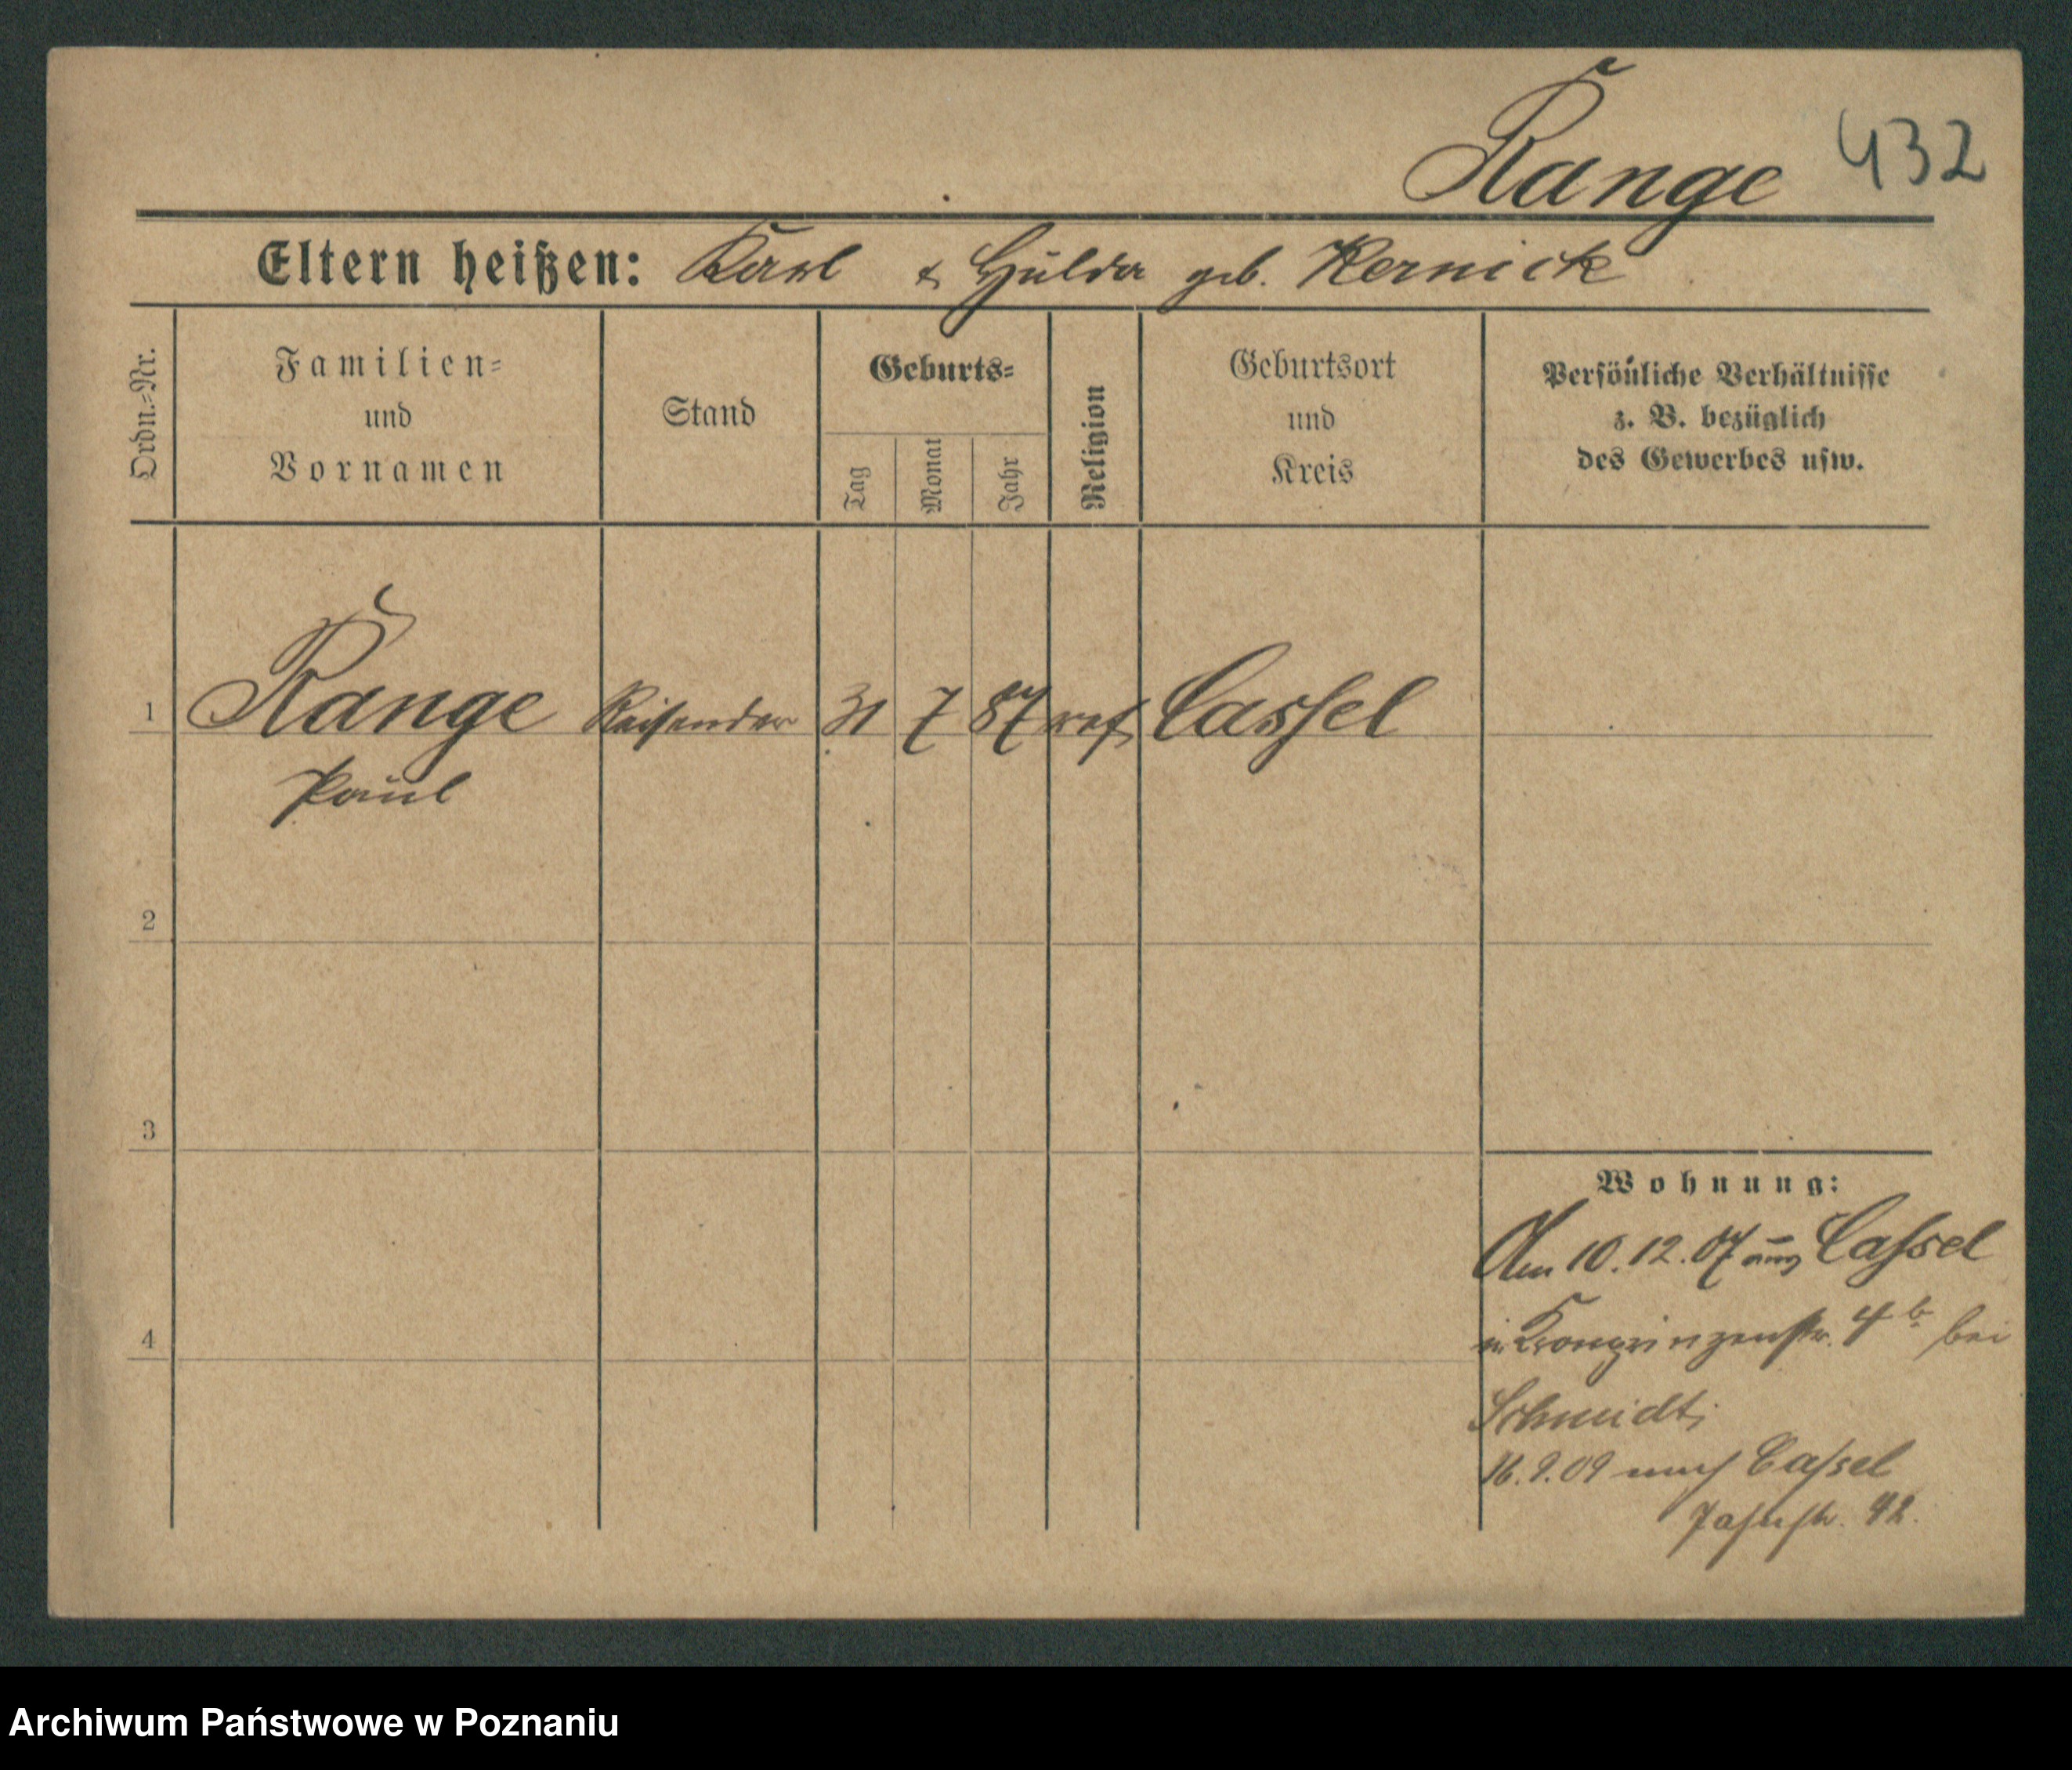 Range 432
Eltern heißen: Karl & Hulda geb. Kernick
Ordn.-Nr.
Familien-
und
Vornamen
Stand
Geburts-
Tag
Monat
Jahr
Religion
Geburtsort
und
Kreis
Persönliche Verhältnisse
z. B. bezüglich
des Gewerbes usw.
1 Range Reisender 31 7 87 ref. Cassel
Paul
2
3
4
Wohnung:
Am 10.12.07 aus Cassel
in Kronprinzenstr. 4b bei
Schmidt;
16.9.09 nach Cassel
42.
Archiwum Państwowe w Poznaniu